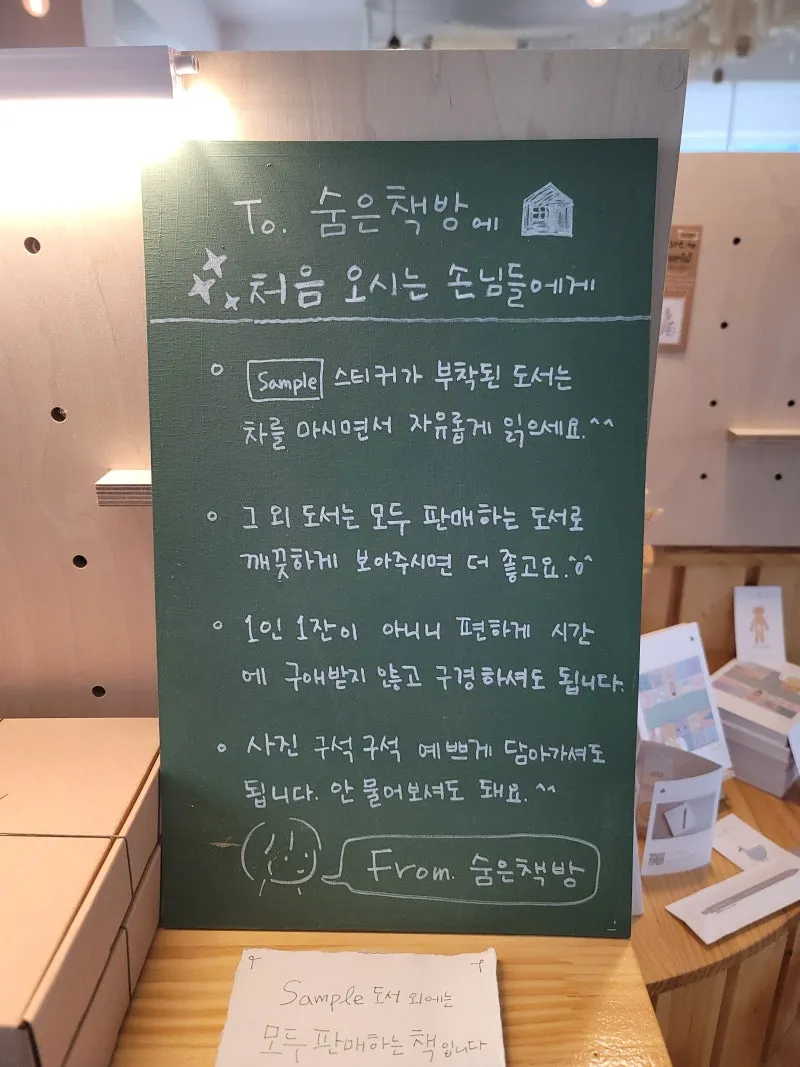 To. 숨은책방에
처음 오시는 손님들에게
Sample 스티커가 부착된 도서는
차를 마시면서 자유롭게 읽으세요.^^
그 외 도서는 모두 판매하는 도서로
깨끗하게 보아주시면 더 좋고요.^o^
1인 1잔이 아니니 편하게 시간
에 구애받지 않고 구경하셔도 됩니다.
사진 구석구석 예쁘게 담아가셔도
됩니다. 안 물어보셔도 돼요.^^
From. 숨은책방
Sample 도서 외에는
모두 판매하는 책입니다